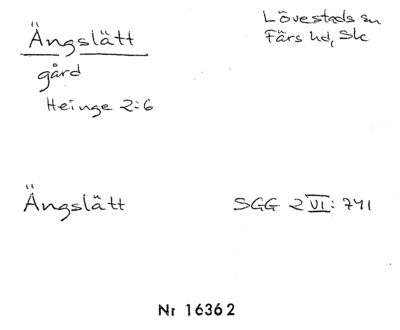 Ängslätt
Lövestads sn
Färs hd, Sk
gård
Heinge 2:6
Ängslätt
SGG 2 VI: 741
Nr 16362